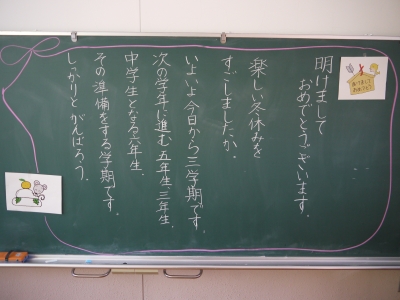 明けまして
おめでとうございます。
楽しい冬休みを
すごしましたか。
いよいよ今日から三学期です。
次の学年に進む五年生、三年生、
中学生となる六年生、
その準備をする学期です。
しっかりとがんばろう。